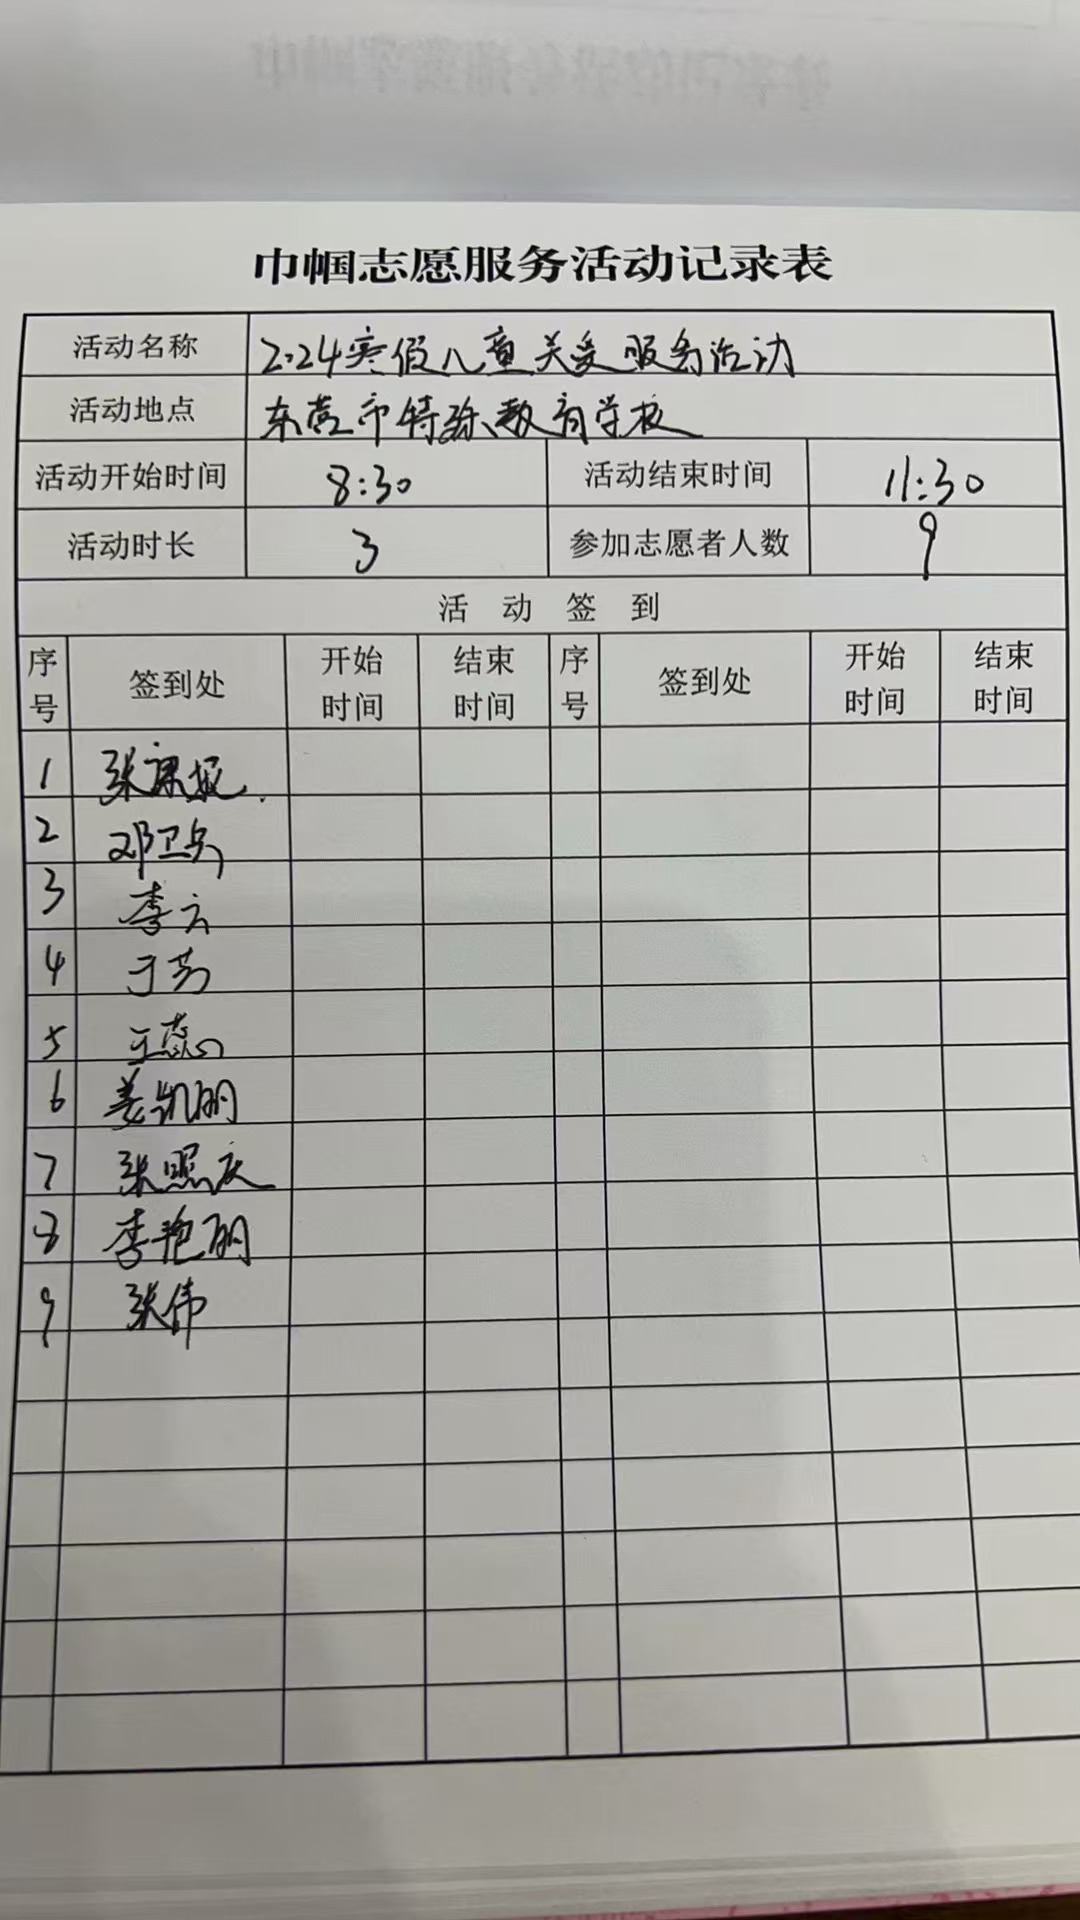 巾帼志愿服务活动记录表
活动名称 2024寒假儿童关爱服务活动
活动地点 东营市特殊教育学校
活动开始时间 8:30 活动结束时间 11:30
活动时长 3 参加志愿者人数 9
活动签到
序号 签到处 开始时间 结束时间 序号 签到处 开始时间 结束时间
1 张
2 邓卫兵
3 李云
4 于芳
5 于蕊
6 姜凯丽
7 张照庆
8 李艳丽
9 张伟